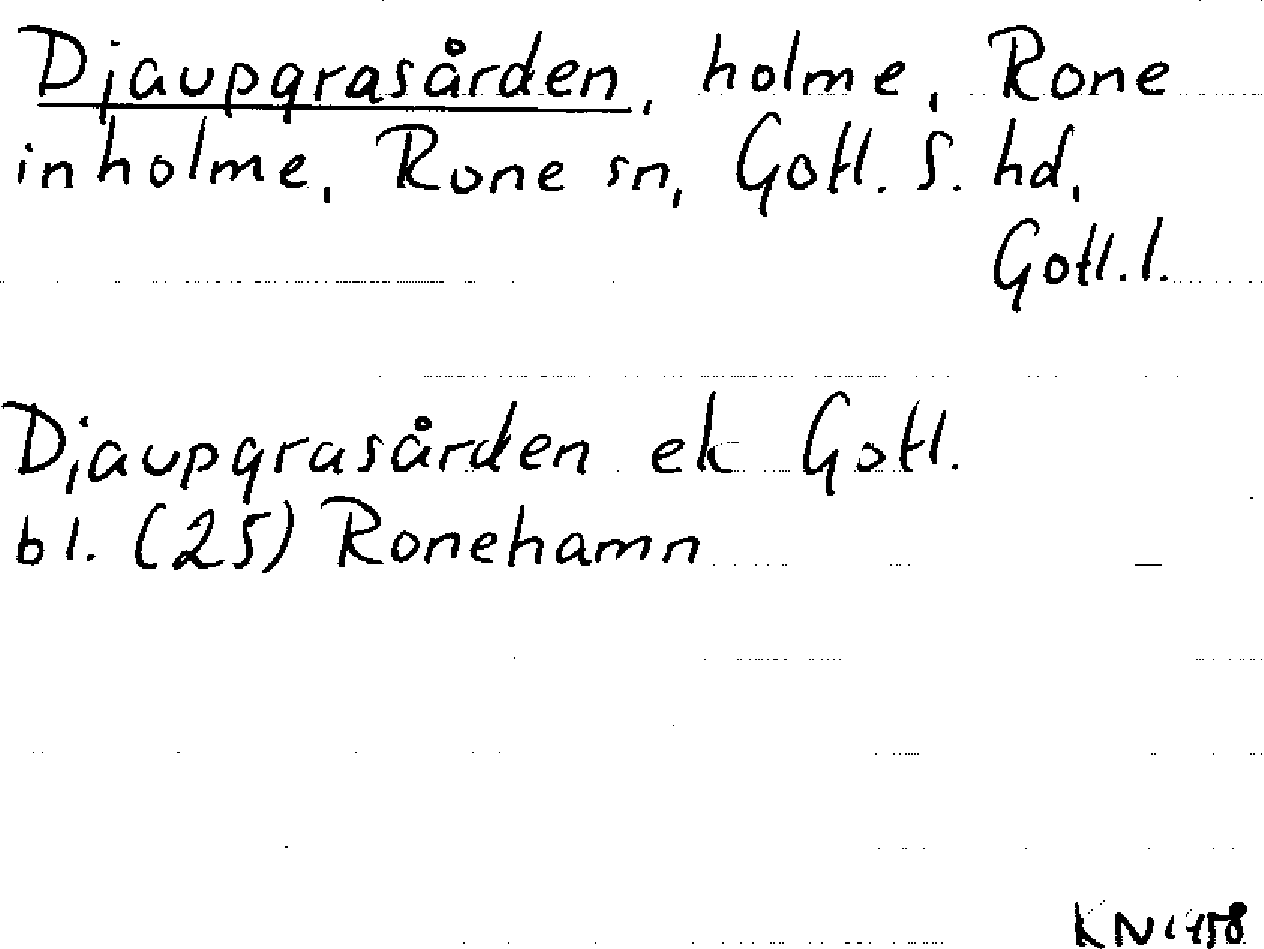 Djaupgrasården, holme, Rone
inholme, Rone sn, Gotl. S. hd,
Gotl. l.
Djaupgrasården ek Gotl.
bl. (25) Ronehamn